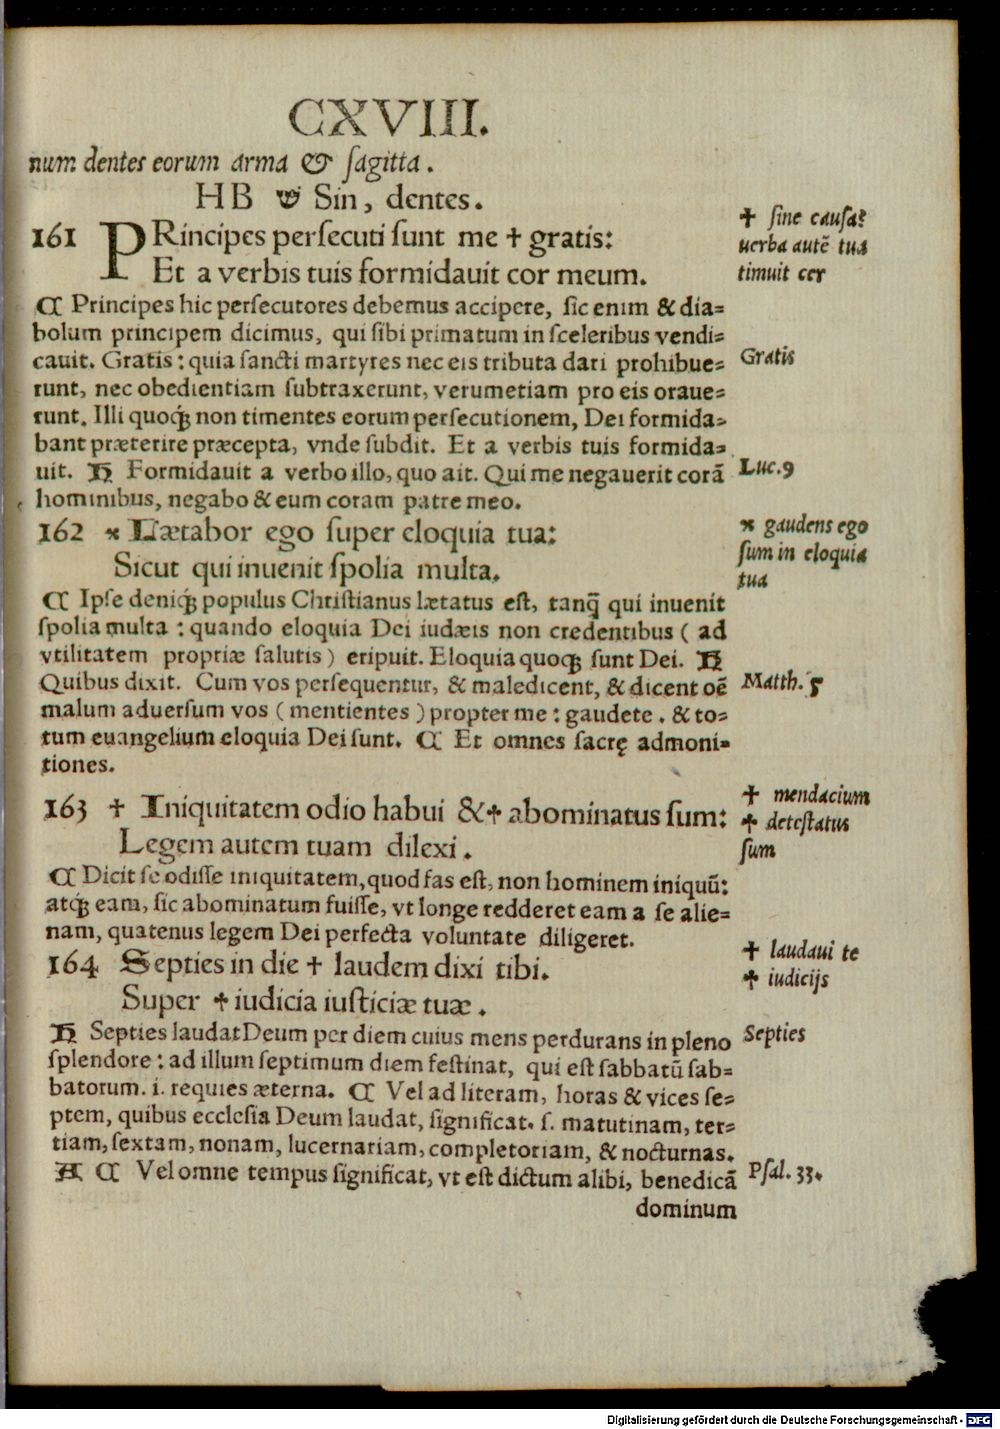 CXVIII.
num dentes eorum arma & ſagitta.
HB ש Sin, dentes.
161 PRincipes perſecuti ſunt me ✝ gratis:
Et a verbis tuis formidauit cor meum.
✝ ſine cauſa?
uerba autē tua
timuit cor
C Principes hic perſecutores debemus accipere, ſic enim & dia=
bolum principem dicimus, qui ſibi primatum in ſceleribus vendi=
cauit. Gratis: quia ſancti martyres nec eis tributa dari prohibue=
Gratis
runt, nec obedientiam ſubtraxerunt, verumetiam pro eis oraue=
runt. Illi quoqꝫ non timentes eorum perſecutionem, Dei formida=
bant præterire præcepta, vnde ſubdit. Et a verbis tuis formida=
uit. H Formidauit a verbo illo, quo ait. Qui me negauerit corā
Luc.9
hominibus, negabo & eum coram patre meo.
162 ⁎ Lætabor ego ſuper eloquia tua:
Sicut qui inuenit ſpolia multa.
⁎ gaudens ego
ſum in eloquia
tua
C Ipſe deniqꝫ populus Chriſtianus lætatus eſt, tanq̄ qui inuenit
ſpolia multa: quando eloquia Dei iudæis non credentibus (ad
vtilitatem propriæ ſalutis) eripuit. Eloquia quoqꝫ ſunt Dei. H
Quibus dixit. Cum vos perſequentur, & maledicent, & dicent oē
Matth. 5
malum aduerſum vos (mentientes) propter me: gaudete. & to=
tum euangelium eloquia Dei ſunt. C Et omnes ſacrę admoni=
tiones.
163 ✝ Iniquitatem odio habui &✝ abominatus ſum:
Legem autem tuam dilexi.
✝ mendacium
✝ deteſtatus
ſum
C Dicit ſe odiſſe iniquitatem, quod fas eſt, non hominem iniquū:
atqꝫ eam, ſic abominatum fuiſſe, vt longe redderet eam a ſe alie=
nam, quatenus legem Dei perfecta voluntate diligeret.
164 Septies in die ✝ laudem dixi tibi.
Super ✝ iudicia iuſticiæ tuæ.
✝ laudaui te
✝ iudicijs
H Septies laudat Deum per diem cuius mens perdurans in pleno
Septies
ſplendore: ad illum ſeptimum diem feſtinat, qui eſt ſabbatū ſab=
batorum. i. requies æterna. C Vel ad literam, horas & vices ſe=
ptem, quibus eccleſia Deum laudat, ſignificat. ſ. matutinam, ter=
tiam, ſextam, nonam, lucernariam, completoriam, & nocturnas.
A C Vel omne tempus ſignificat, vt eſt dictum alibi, benedicā
Pſal. 33.
dominum
Digitalisierung gefördert durch die Deutsche Forschungsgemeinschaft - DFG